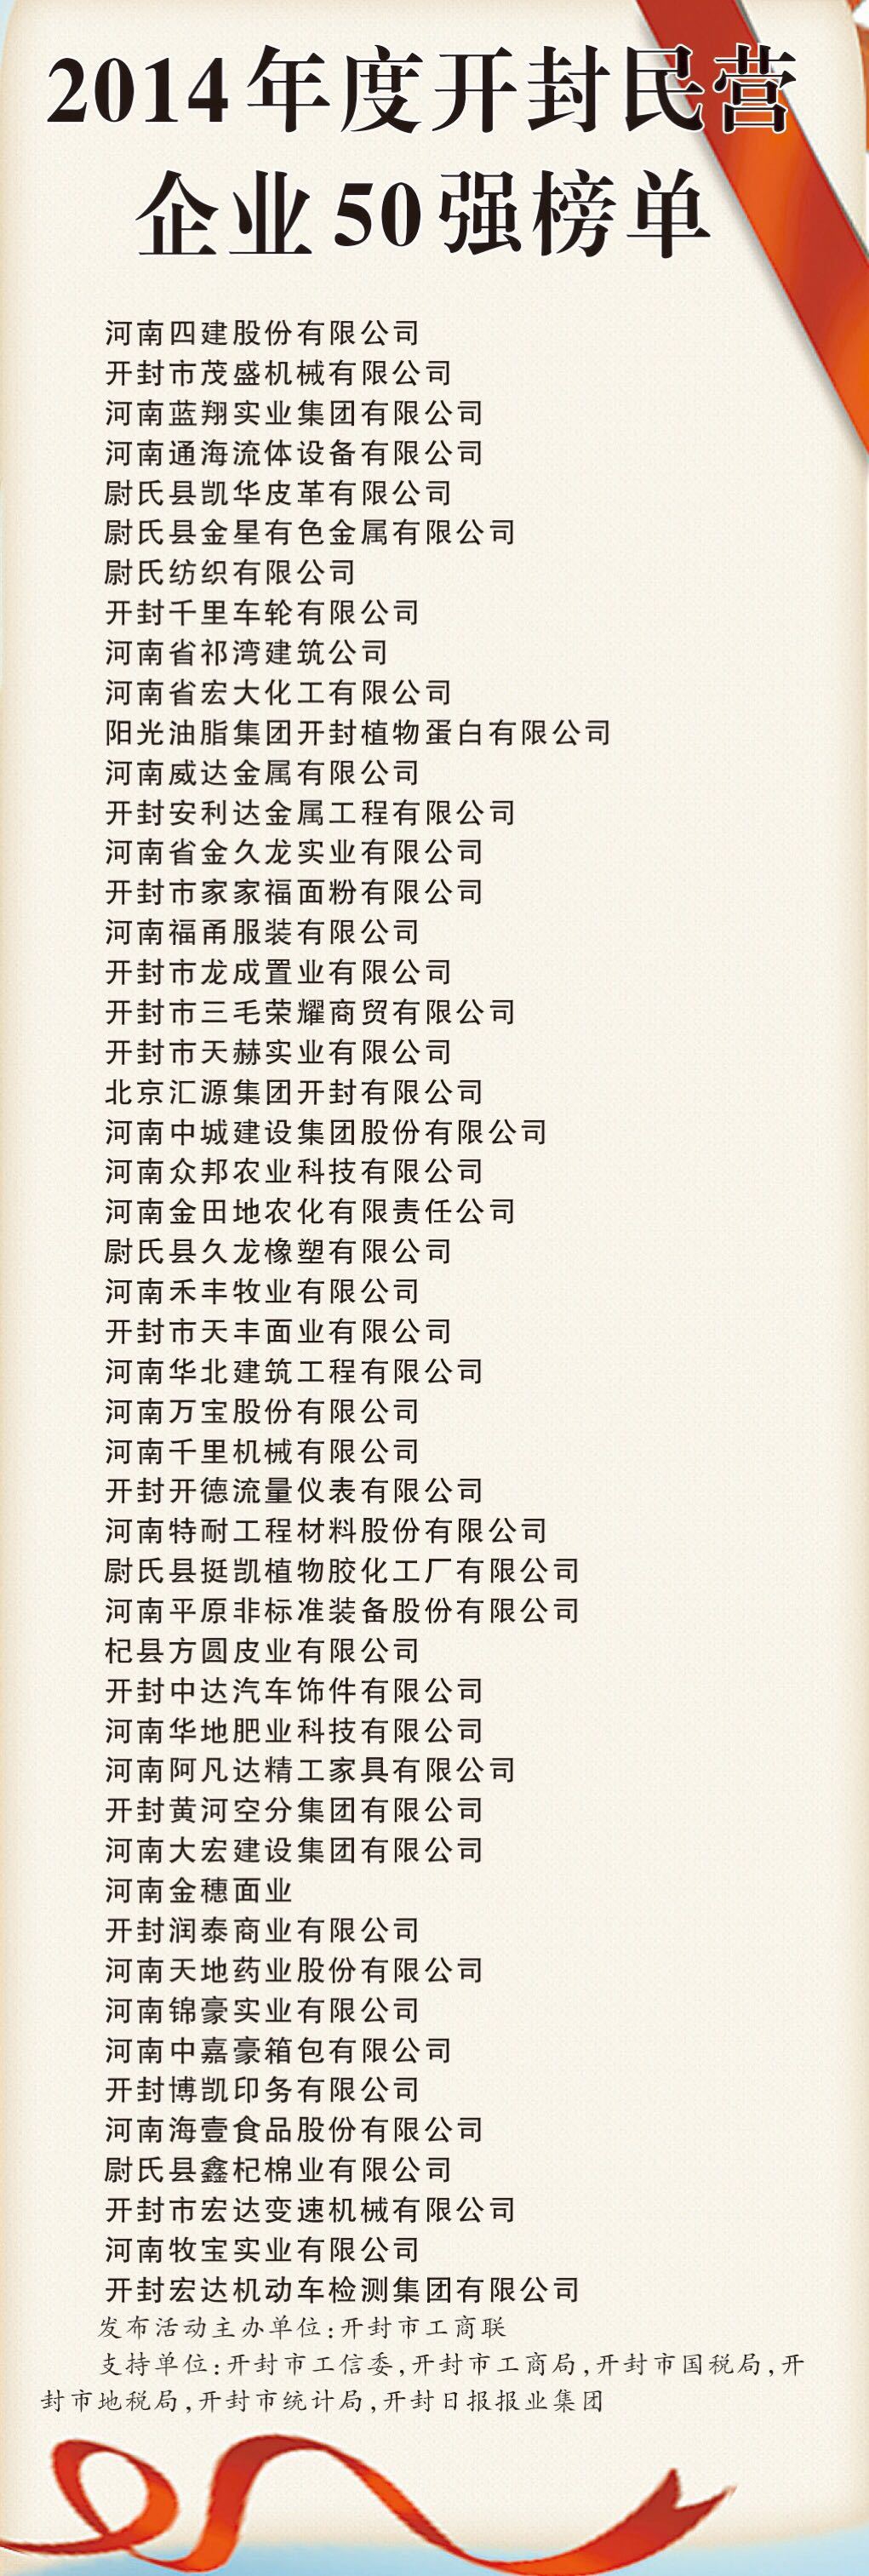 2014年度开封民营
企业50强榜单
河南四建股份有限公司
开封市茂盛机械有限公司
河南蓝翔实业集团有限公司
河南通海流体设备有限公司
尉氏县凯华皮革有限公司
尉氏县金星有色金属有限公司
尉氏纺织有限公司
开封千里车轮有限公司
河南省祁湾建筑公司
河南省宏大化工有限公司
阳光油脂集团开封植物蛋白有限公司
河南威达金属有限公司
开封安利达金属工程有限公司
河南省金久龙实业有限公司
开封市家家福面粉有限公司
河南福甬服装有限公司
开封市龙成置业有限公司
开封市三毛荣耀商贸有限公司
开封市天赫实业有限公司
北京汇源集团开封有限公司
河南中城建设集团股份有限公司
河南众邦农业科技有限公司
河南金田地农化有限责任公司
尉氏县久龙橡塑有限公司
河南禾丰牧业有限公司
开封市天丰面业有限公司
河南华北建筑工程有限公司
河南万宝股份有限公司
河南千里机械有限公司
开封开德流量仪表有限公司
河南特耐工程材料股份有限公司
尉氏县挺凯植物胶化工厂有限公司
河南平原非标准装备股份有限公司
杞县方圆皮业有限公司
开封中达汽车饰件有限公司
河南华地肥业科技有限公司
河南阿凡达精工家具有限公司
开封黄河空分集团有限公司
河南大宏建设集团有限公司
河南金穗面业
开封润泰商业有限公司
河南天地药业股份有限公司
河南锦豪实业有限公司
河南中嘉豪箱包有限公司
开封博凯印务有限公司
河南海壹食品股份有限公司
尉氏县鑫杞棉业有限公司
开封市宏达变速机械有限公司
河南牧宝实业有限公司
开封宏达机动车检测集团有限公司
发布活动主办单位:开封市工商联
支持单位:开封市工信委,开封市工商局,开封市国税局,开
封市地税局,开封市统计局,开封日报报业集团